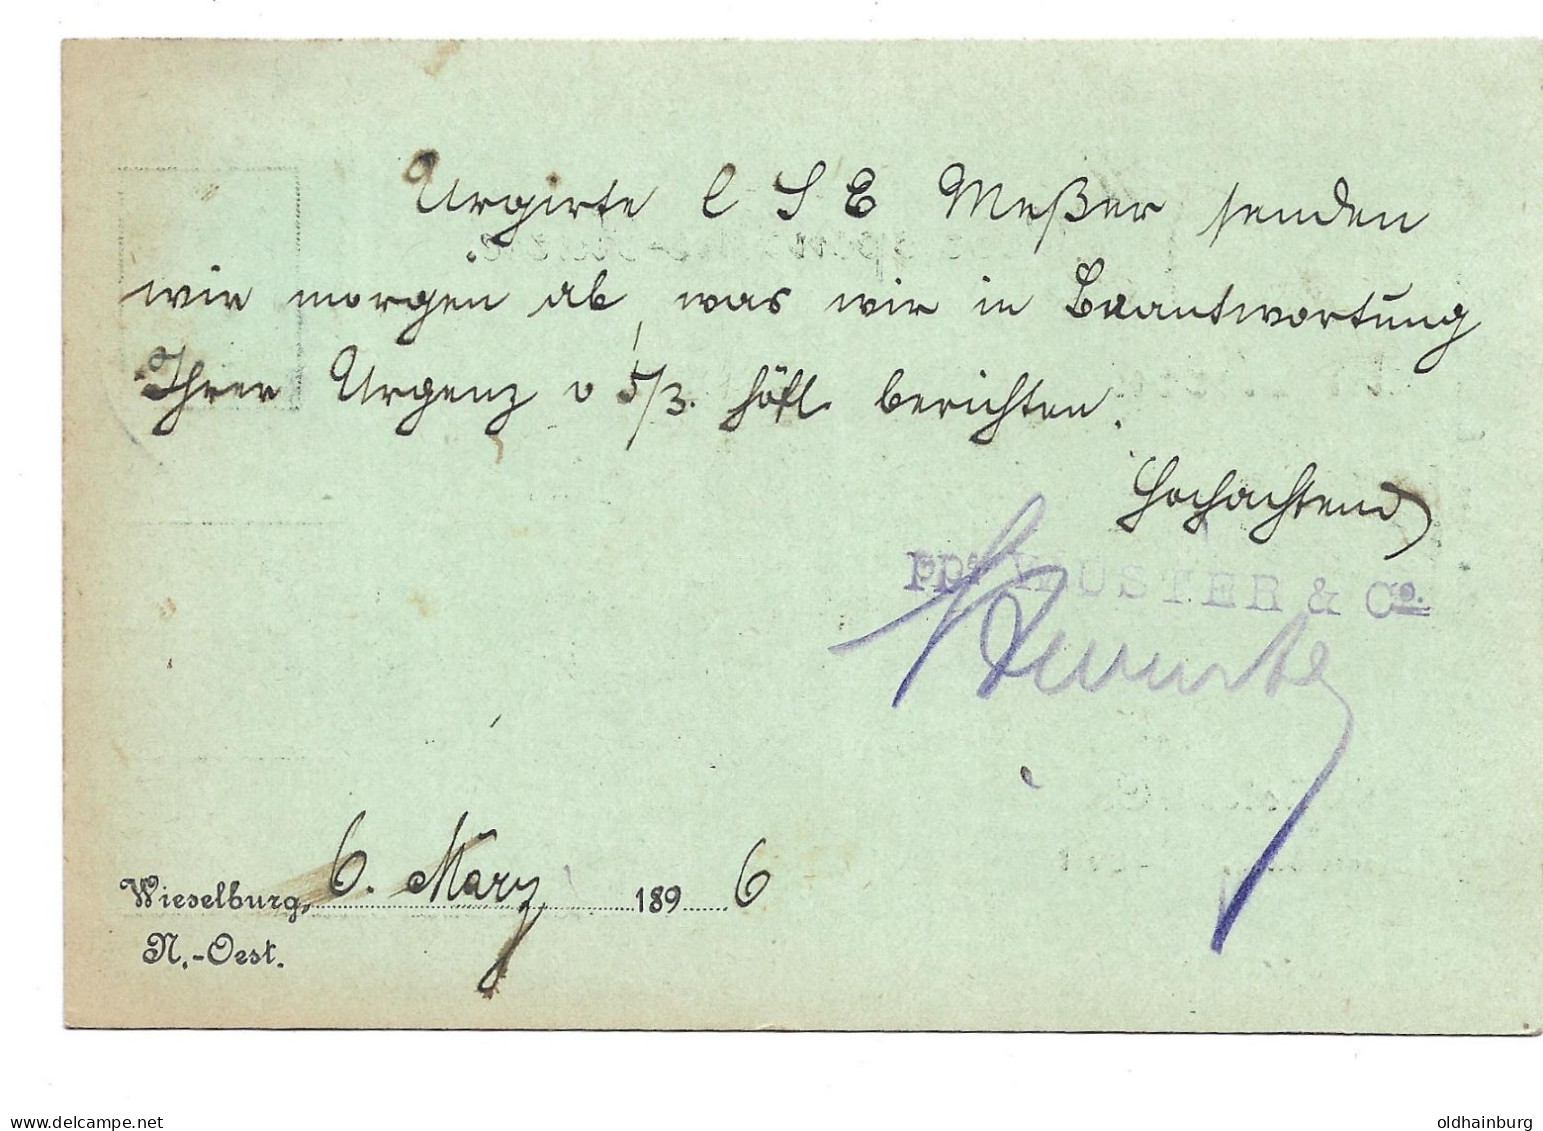 Urgirte C S E Meßer senden
wir morgen ab, was wir in Beantwortung
Ihrer Urgenz v 5/3. höfl. berichten.
Hochachtend
ppa WÜSTER & Co.
Wieselburg, 6. März 1896
N.-Oest.
oldhainburg